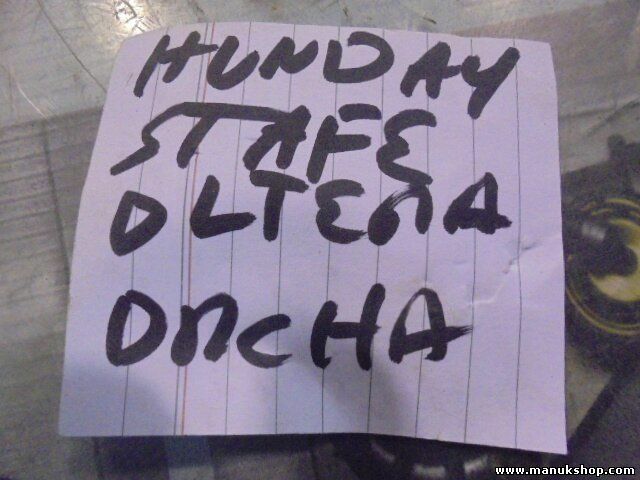 HUNDAY
STAFE
DLTERA
DRCHA
www.manukshop.com